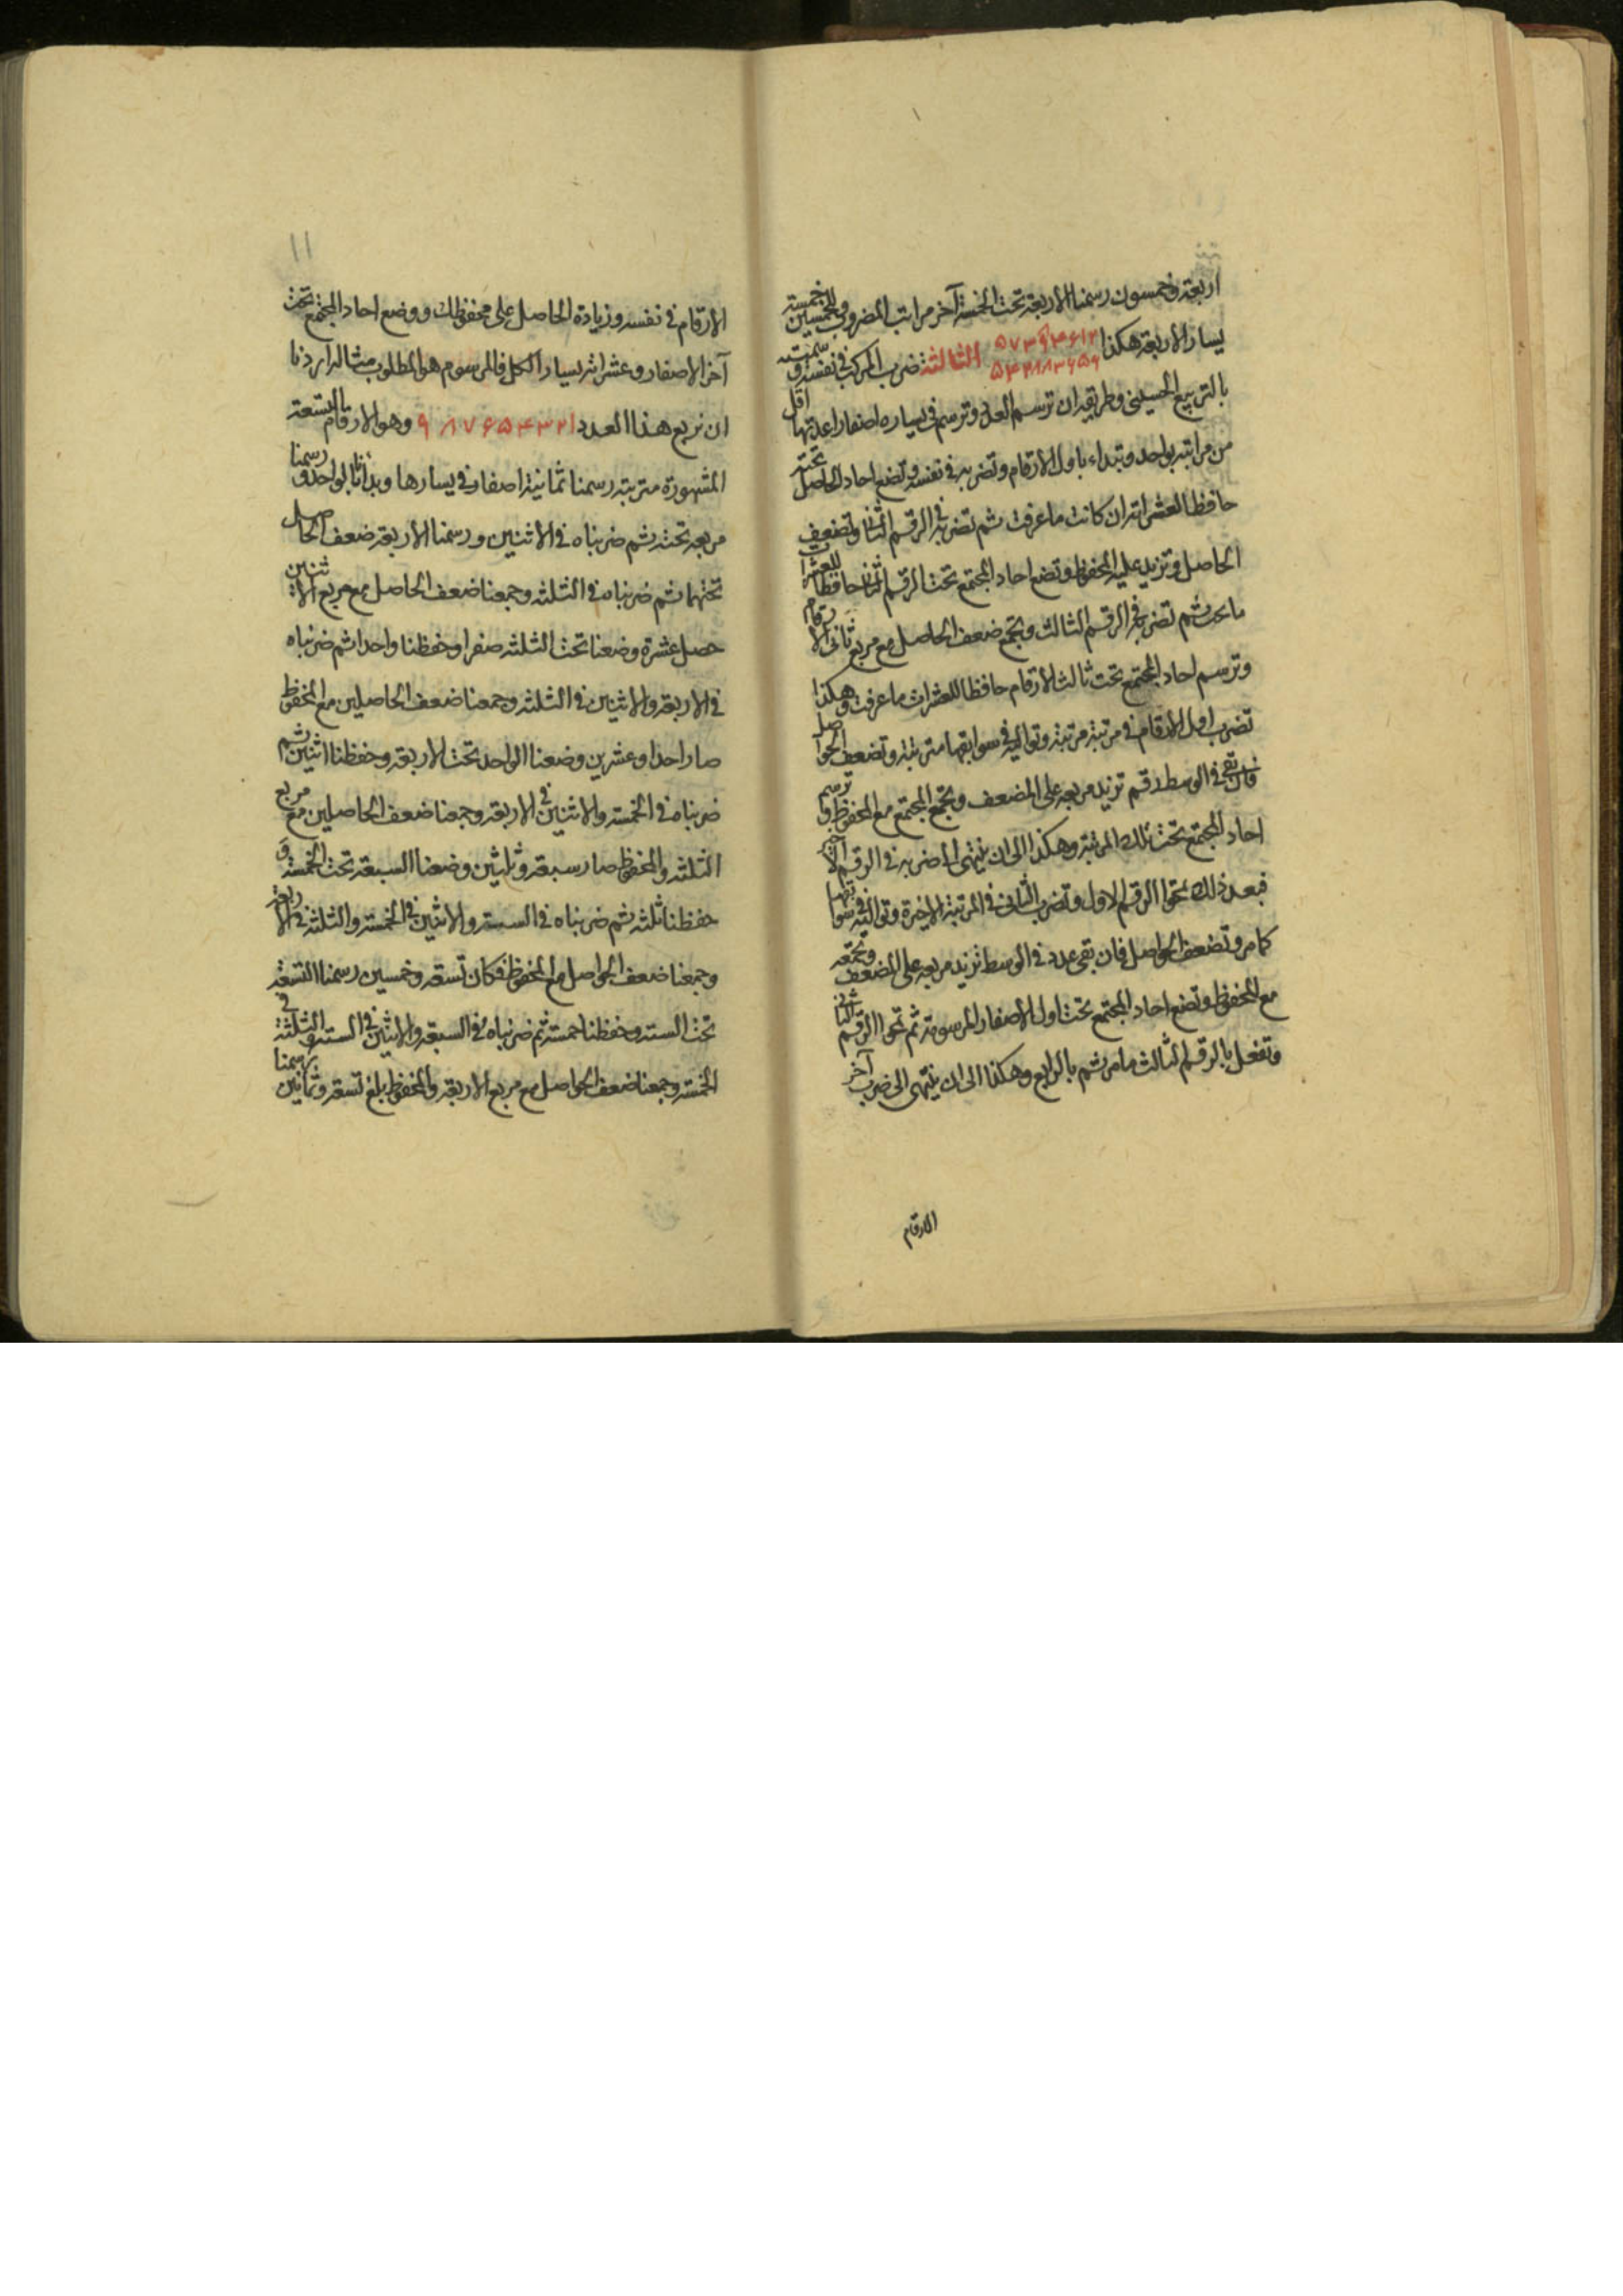 اربعة وخمسون رسمنا الاربعة تحت الخمسة آخر مراتب المضروب وللخمسين خمسة
يسار الاربعة هكذا ۵۷۳۹۴۶۱۲ الثالثة ضرب المركب فى نفسه وسميته
بالتربيع الحسينى وطريقه ان ترسم العدد وترسم فى يساره اصفارا عدتها اقل
من مراتبه بواحد وتبداء باول الارقام وتضربه فى نفسه وتضع احاد الحاصل تحته
حافظا لعشراته ان كانت ما عرفت ثم تضربه فى الرقم الثانى وتضعف
الحاصل وتزيد عليه المحفوظ وتضع احاد المجتمع تحت الرقم الثانى حافظا للعشرات
ثم تضربه فى الرقم الثالث وتجمع ضعف الحاصل مع مربع ثانى الارقام
وترسم احاد المجتمع تحت ثالث الارقام حافظا للعشرات ما عرفت وهكذا
تضرب اول الارقام فى مرتبة مرتبة وتواليه فى سوابقها مترتبة وتضعف الحواصل
فان بقى فى الوسط رقم تزيد مربعه على المضعف وتجمع المجتمع مع المحفوظ وترسم
احاد المجتمع تحت تلك المرتبة وهكذا الى ان ينتهى الى ضربه فى الرقم الاخير
فبعد ذلك تمحوا الرقم الاول وتضرب الثانى فى المرتبة الاخيرة وتواليه فى سوابقها
كما مر وتضعف الحواصل فان بقى عدد فى الوسط تزيد مربعه على المضعف وتجمعه
مع المحفوظ وتضع احاد المجتمع تحت اول الاصفار المرسومة ثم تمحوا الرقم الثانى
وتفعل بالرقم الثالث ما مر ثم بالرابع وهكذا الى ان ينتهى الى ضرب آخر
الارقام
١١
الارقام فى نفسه وزيادة الحاصل على محفوظك ووضع احاد المجتمع تحت
آخر الاصفار وعشراته يسار الكل فالمرسوم هو المطلوب مثاله اردنا
ان نربع هذا العدد ۹۸۷۶۵۴۳۲۱ وهو الارقام التسعة
المشهورة مترتبة رسمنا ثمانية اصفار فى يسارها وبدأنا بالواحد ورسمنا
مربعه تحته ثم ضربناه فى الاثنين ورسمنا الاربعة ضعف الحاصل
تحتهما ثم ضربناه فى الثلثه وجمعنا ضعف الحاصل مع مربع الاثنين
حصل عشرة وضعنا تحت الثلثه صفرا وحفظنا واحدا ثم ضربناه
فى الاربعة والاثنين فى الثلثه وجمعنا ضعف الحاصلين مع المحفوظ
صار احدا وعشرين وضعنا الواحد تحت الاربعة وحفظنا اثنين ثم
ضربناه فى الخمسة والاثنين فى الاربعة وجمعنا ضعف الحاصلين مع مربع
الثلثة والمحفوظ صار سبعة وثلثين وضعنا السبعة تحت الخمسة و
حفظنا ثلثه ثم ضربناه فى الستة والاثنين فى الخمسة والثلثة فى الاربعة
وجمعنا ضعف الحواصل مع المحفوظ فكان تسعة وخمسين رسمنا التسعة
تحت الستة وحفظنا خمسة ثم ضربناه فى السبعة والاثنين فى الستة والثلثة فى
الخمسة وجمعنا ضعف الحواصل مع مربع الاربعة والمحفوظ بلغ تسعة وثمانين رسمنا